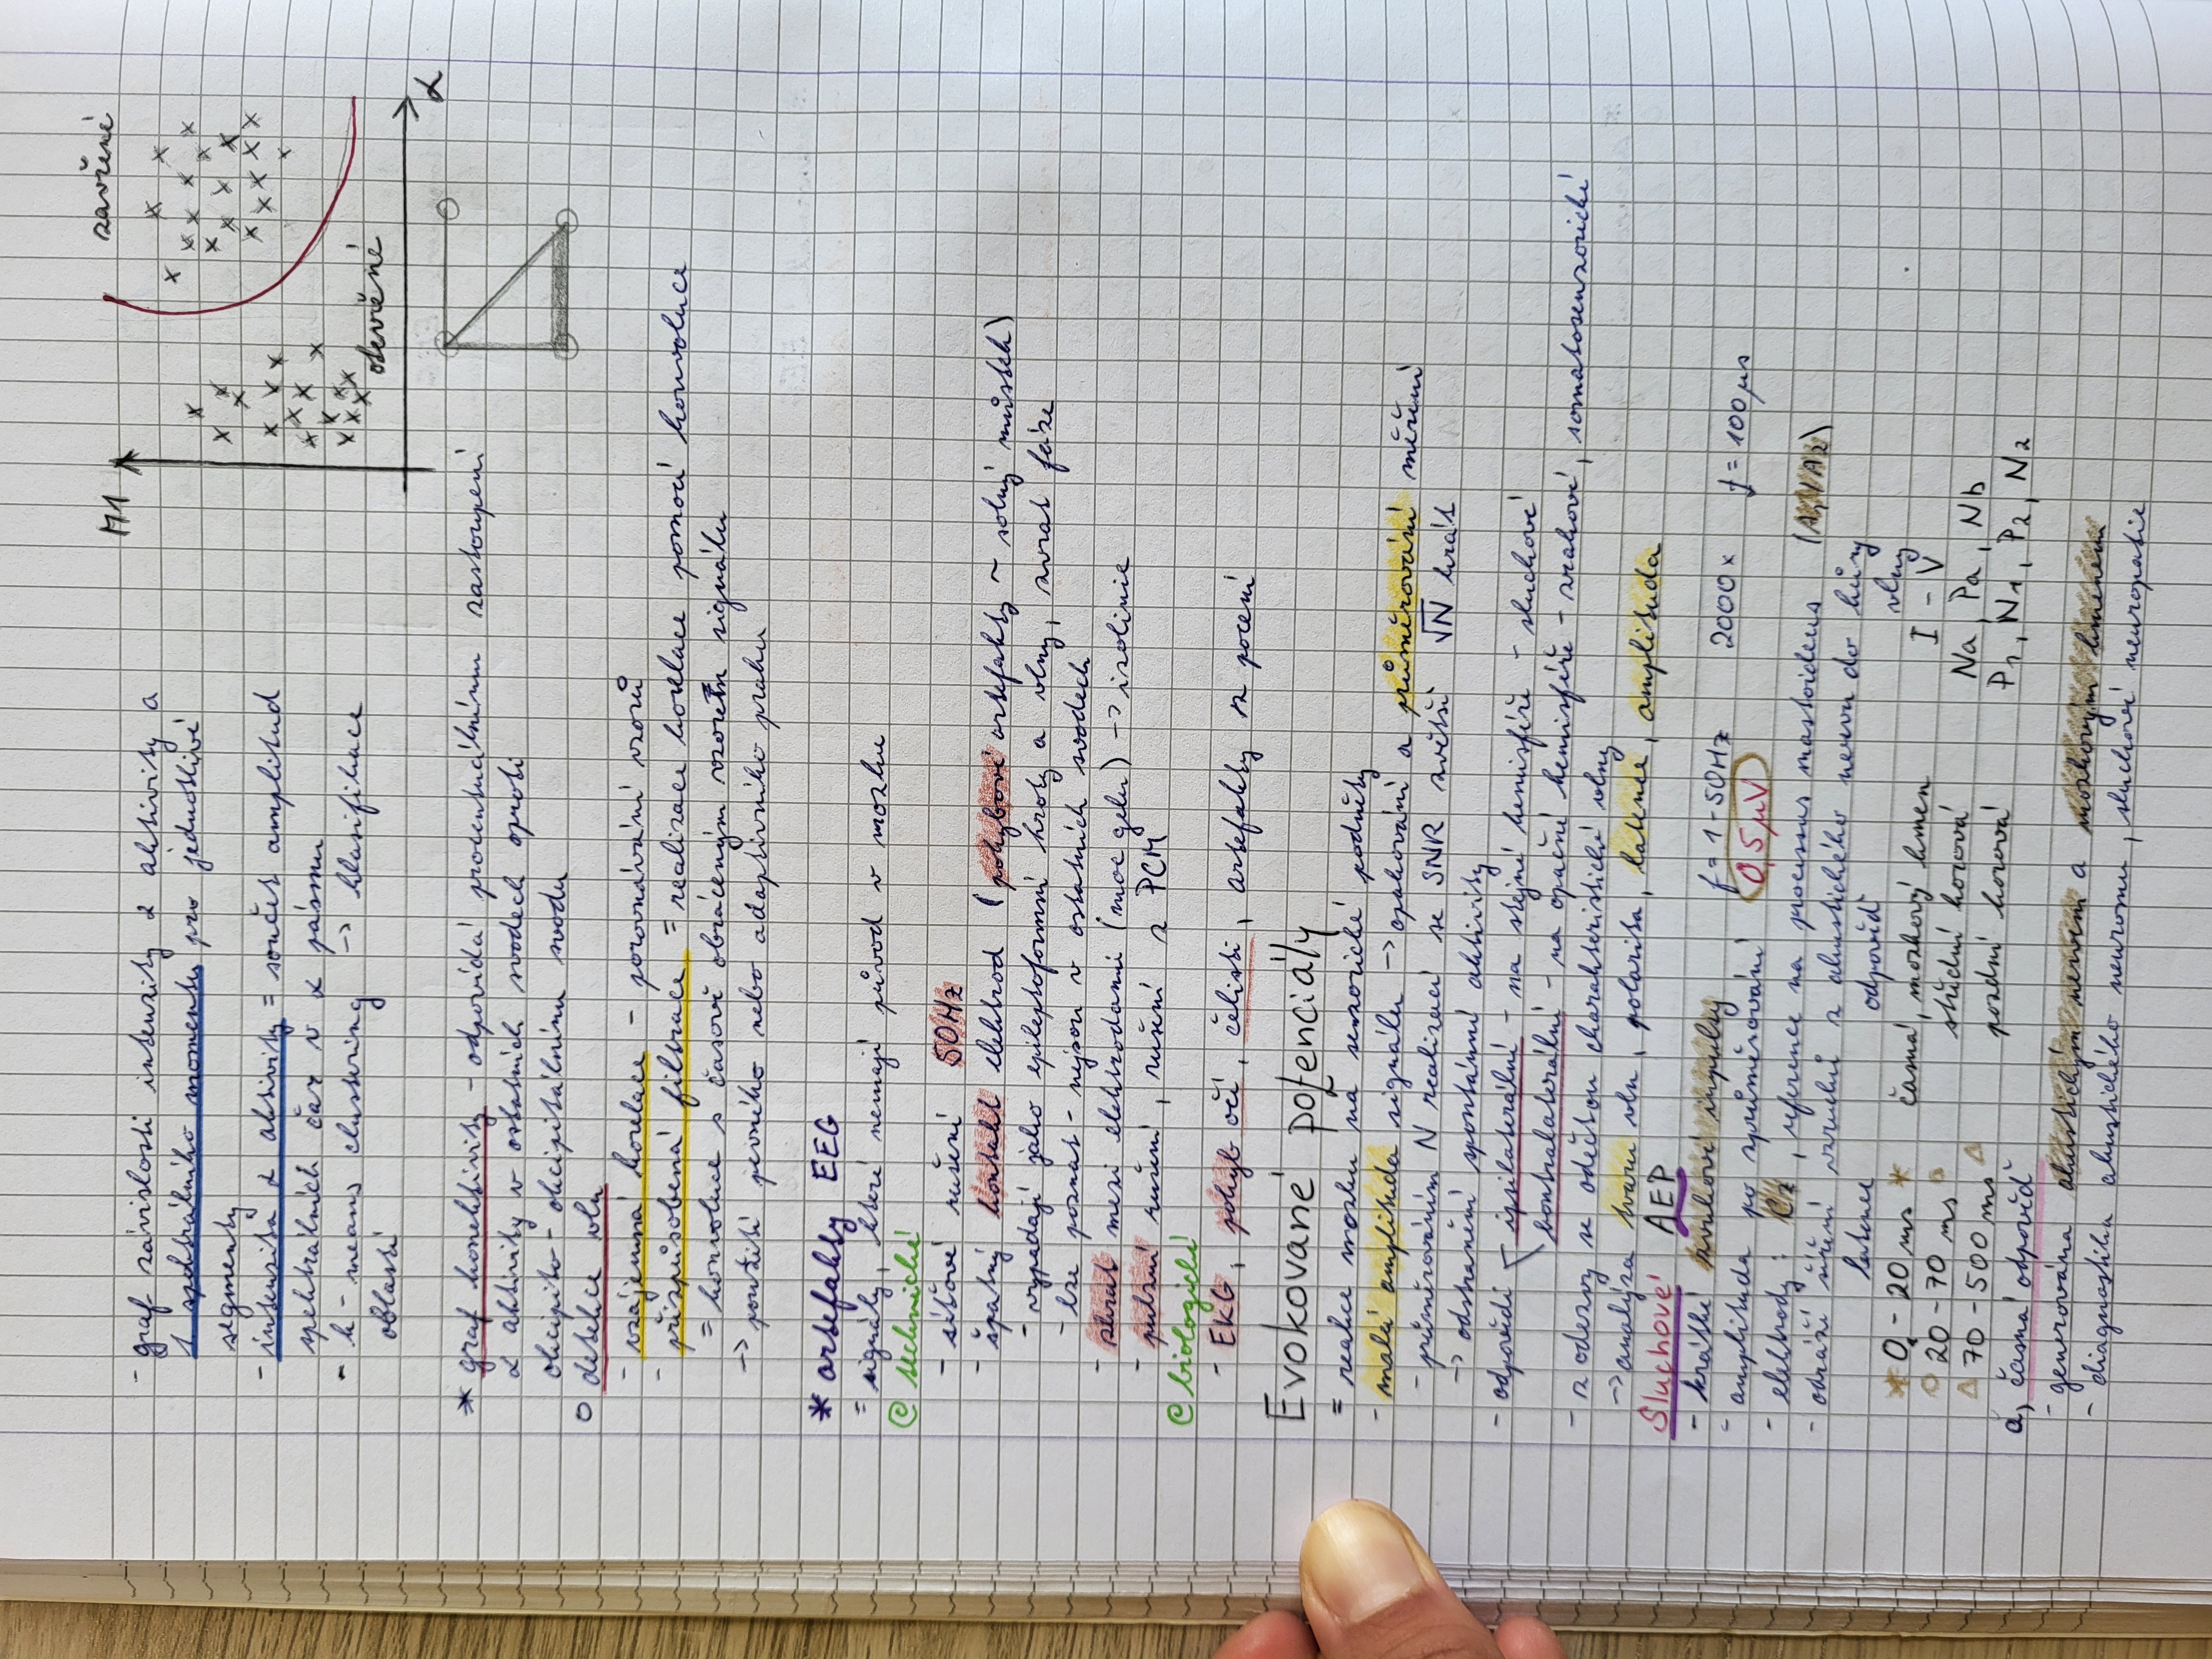 - graf závislosti intenzity α aktivity a
1 spektrálního momentu pro jednotlivé
segmenty
- intenzita α aktivity = součet amplitud
spektrálních čar v α pásmu
- k-means clustering -> klasifikace
oblastí
M1
zavřené
otevřené
α
* graf konektivity - odpovídá procentuálnímu zastoupení
α aktivity v ostatních svodech oproti
okcipito-okcipitálnímu svodu
o detekce vln
- vzájemná korelace - porovnávání vzorů
- přizpůsobená filtrace = realizace korelace pomocí konvoluce
= konvoluce s časově obráceným vzorem signálu
-> použití pevného nebo adaptivního prahu
* artefakty EEG
= signály, které nemají původ v mozku
@ technické
- síťové rušení 50Hz
- špatný kontakt elektrod (pohybové artefakty ~ solný můstek)
- vypadají jako epileptoformní hroty a vlny, zvrat fáze
- lze poznat - nejsou v ostatních svodech
- zkrat mezi elektrodami (moc gelu) -> izolinie
- pulzní rušení, rušení z PCM
@ biologické
- EKG, pohyb očí, čelisti, artefakty z pocení
Evokované potenciály
= reakce mozku na senzorické podněty
- malá amplituda signálu -> opakování a průměrování měření
- průměrováním N realizací se SNR zvětší √N krát
-> odstranění spontánní aktivity
- odpovědi - ipsilaterální - na stejné hemisféře - sluchové
kontralaterální - na opačné hemisféře - zrakové, somatosenzorické
- z odezvy se odečtou charakteristické vlny
-> analýza tvaru vln, polarita, latence, amplituda
Sluchové AEP
- krátké zvukové impulsy f = 1-50Hz 2000x f = 100μs
- amplituda po zprůměrování 0,5μV
- elektrody: Cz, reference na processus mastoideus (A1/A2)
- odráží šíření vzruchů z akustického nervu do kůry
latence odpověď vlny
* 0 - 20 ms * časná, mozkový kmen I - V
20 - 70 ms střední korová Na, Pa, Nb
70 - 500 ms pozdní korová P1, N1, P2, N2
a, časná odpověď
- generována akustickým nervem a mozkovým kmenem
- diagnostika akustického neuromu, sluchové neuropatie